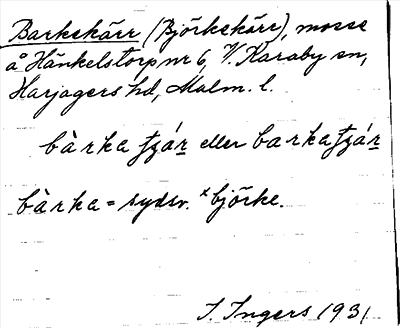 Barkekärr (Björkekärr), mosse
å Hänkelstorp nr 6, V. Karaby sn,
Harjagers hd, Malm. l.
bàrka eller barka
bàrka = sydsv. ˣbjörke.
I. Ingers 1931